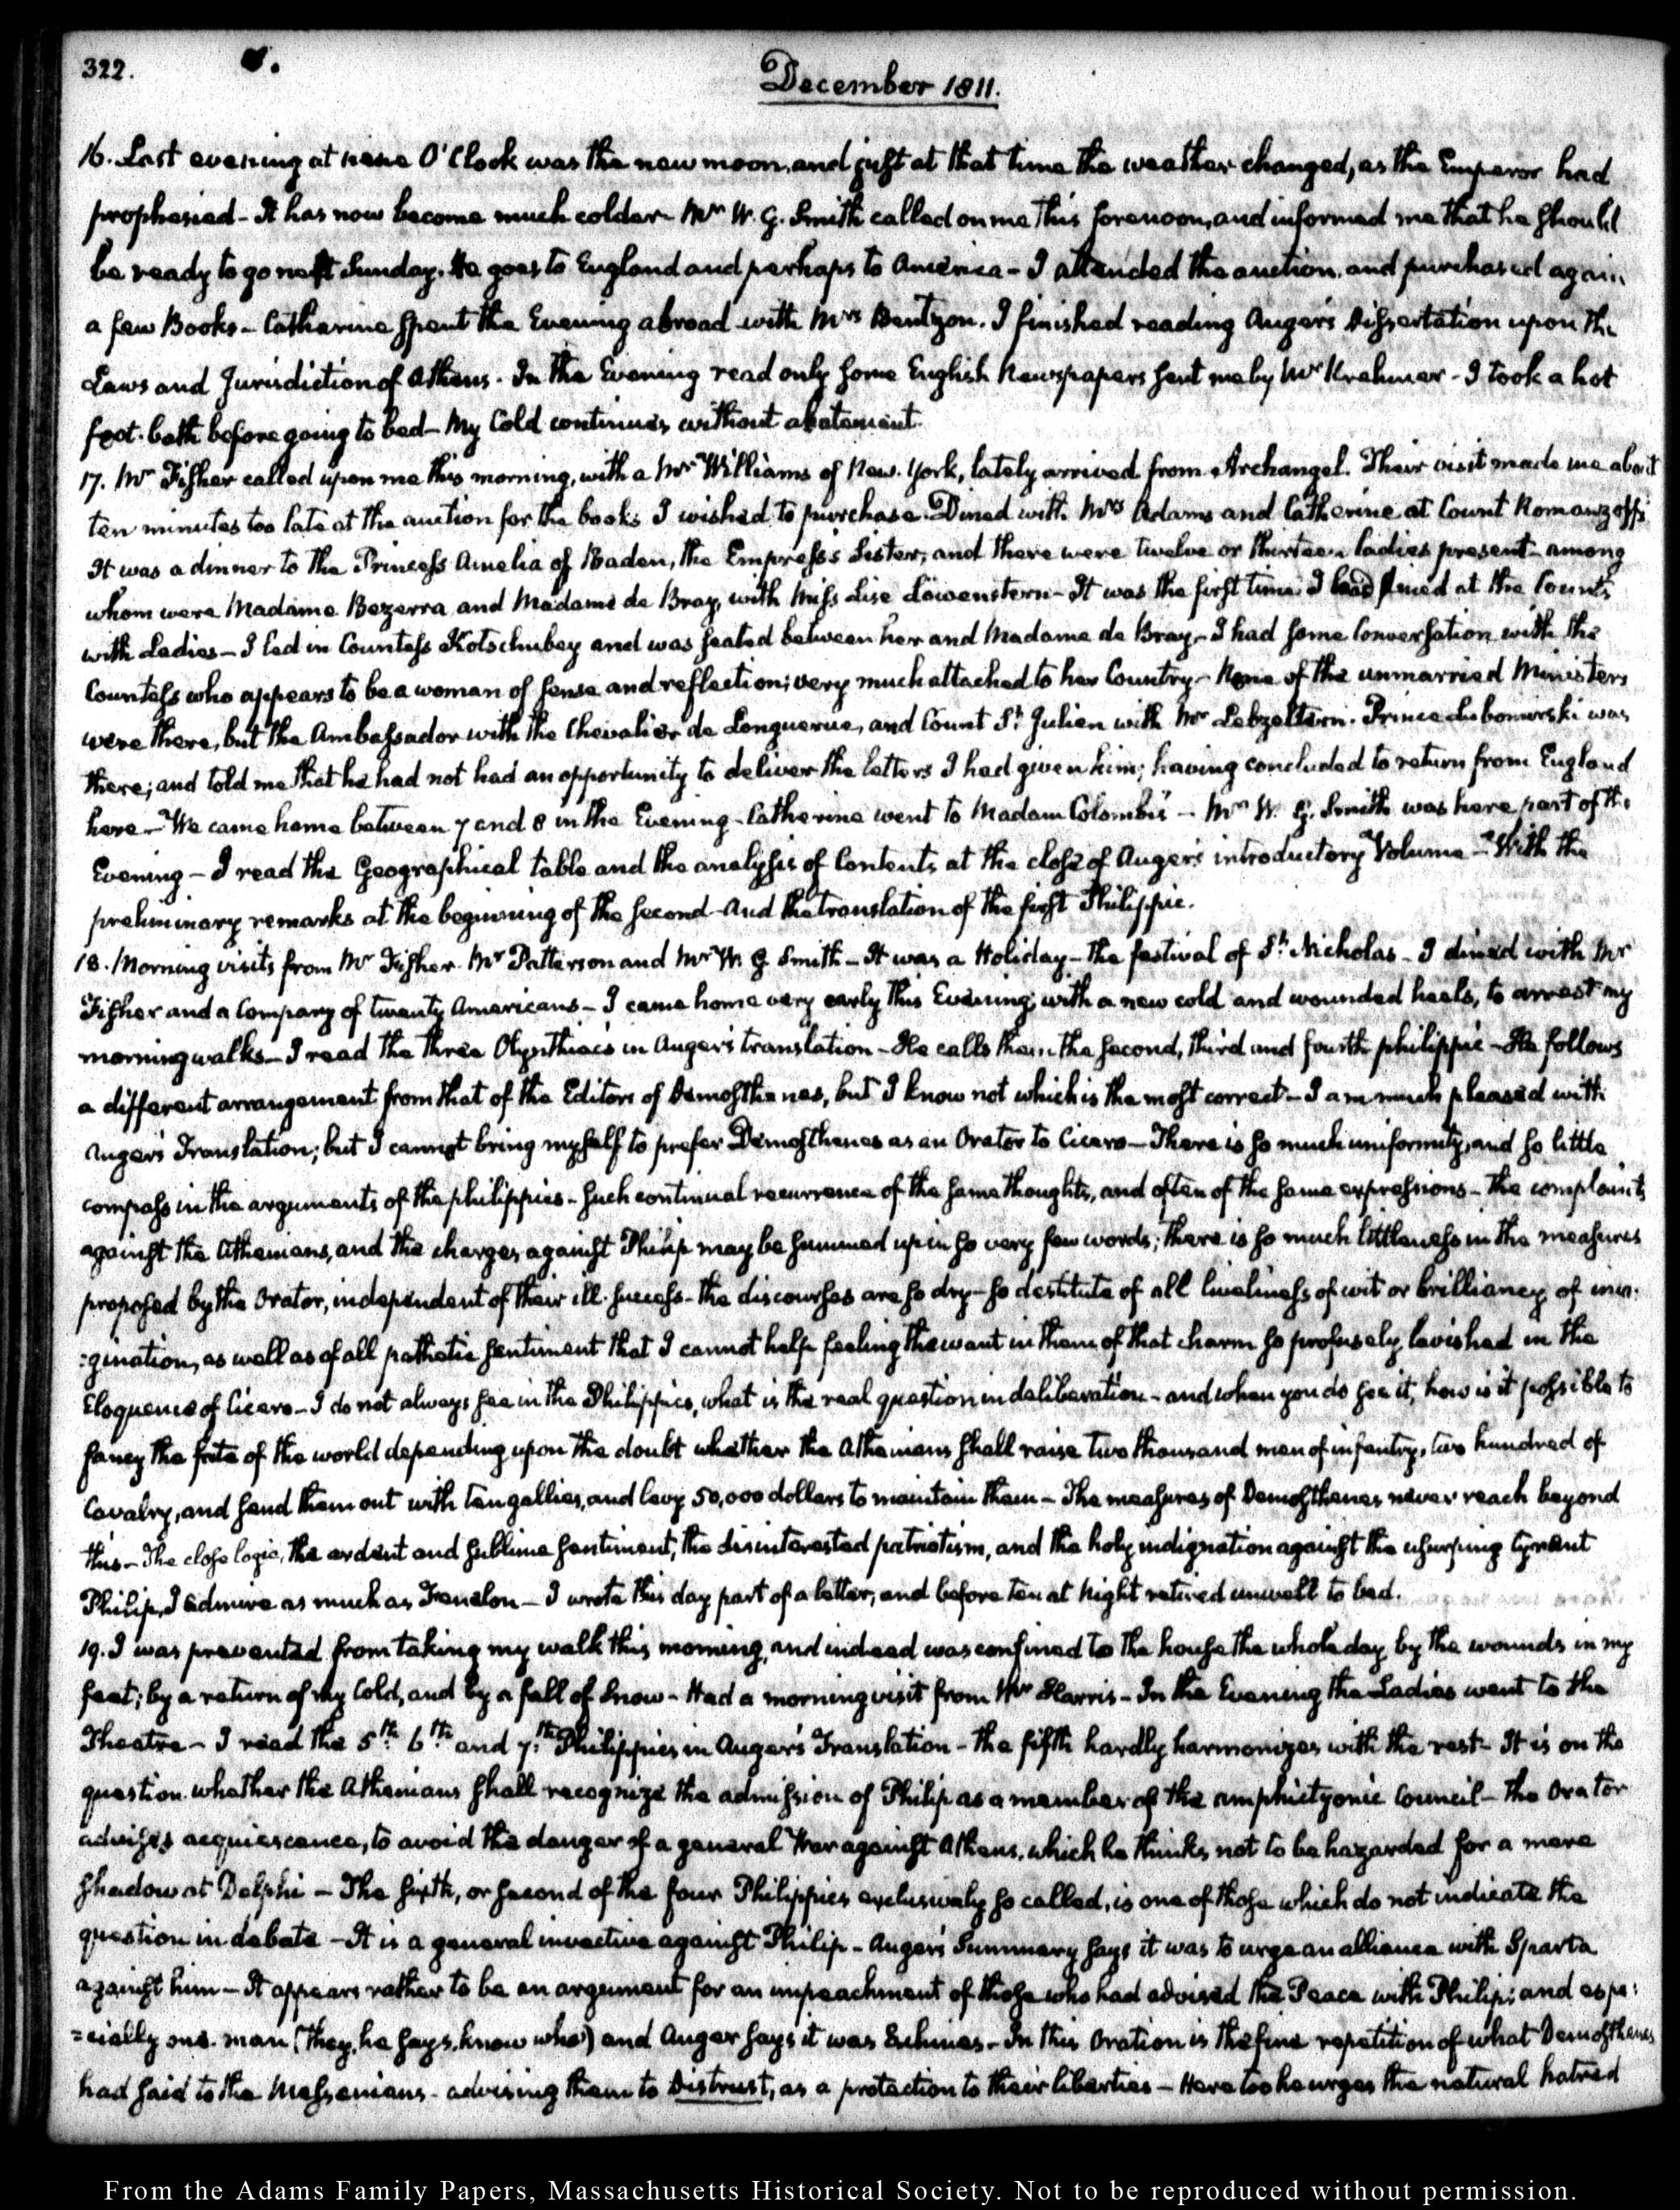 322.
December 1811.
16. Last evening at nine O'Clock was the new moon, and just at that time the weather changed, as the Emperor had
prophesied - It has now become much colder - Mr W. G. Smith called on me this forenoon, and informed me that he should
be ready to go next Sunday. He goes to England and perhaps to America - I attended the auction, and purchased again
a few Books - Catharine spent the Evening abroad with Mrs Bentzon. I finished reading Auger's Dissertation upon the
Laws and Jurisdiction of Athens. In the Evening read only some English Newspapers sent me by Mr Krehmer - I took a hot
foot-bath before going to bed - My Cold continues without abatement.
17. Mr Fisher called upon me this morning, with a Mr Williams of New-York, lately arrived from Archangel. Their visit made me about
ten minutes too late at the auction for the books I wished to purchase. Dined with Mrs Adams and Catherine at Count Romanzoff's
It was a dinner to the Princess Amelia of Baden, the Empress's Sister, and there were twelve or thirteen ladies present - among
whom were Madame Bezerra and Madame de Bray, with Miss Lise Löwenstern - It was the first time I had dined at the Count's
with Ladies - I led in Countess Kotschubey and was seated between her and Madame de Bray - I had some Conversation with the
Countess who appears to be a woman of sense and reflection; very much attached to her Country - None of the unmarried Ministers
were there, but the Ambassador with the Chevalier de Longuerue, and Count St Julien with Mr Lebzeltern. Prince Lubomirski was
there; and told me that he had not had an opportunity to deliver the letters I had given him; having concluded to return from England
here - We came home between 7 and 8 in the Evening - Catherine went to Madam Colombi's - Mr W. G. Smith was here part of the
Evening - I read the Geographical table and the analysis of Contents at the close of Auger's introductory Volume - With the
preliminary remarks at the beginning of the second - And the translation of the first Philippic.
18. Morning visits from Mr Fisher. Mr Patterson and Mr W. G. Smith - It was a Holiday - the festival of St Nicholas - I dined with Mr
Fisher and a Company of twenty Americans - I came home very early this Evening; with a new cold and wounded heels, to arrest my
morning walks - I read the three Olynthiacs in Auger's translation - He calls them the second, third and fourth philippic - He follows
a different arrangement from that of the Editors of Demosthenes, but I know not which is the most correct - I am much pleased with
Auger's Translation; but I cannot bring myself to prefer Demosthenes as an Orator to Cicero - There is so much uniformity, and so little
compass in the arguments of the philippics - such continual recurrence of the same thoughts, and often of the same expressions - the complaints
against the Athenians, and the charges against Philip may be summed up in so very few words; there is so much littleness in the measures
proposed by the Orator, independent of their ill-success - the discourses are so dry - so destitute of all liveliness of wit or brilliancy of ima:
:gination, as well as of all pathetic sentiment that I cannot help feeling the want in them of that charm so profusely lavished in the
Eloquence of Cicero - I do not always see in the Philippics, what is the real question in deliberation - and when you do see it, how is it possible to
fancy the fate of the world depending upon the doubt whether the Athenians shall raise two thousand men of infantry, two hundred of
Cavalry, and send them out with ten gallies, and levy 50,000 dollars to maintain them - The measures of Demosthenes never reach beyond
this - The close logic, the ardent and sublime sentiment, the disinterested patriotism, and the holy indignation against the usurping tyrant
Philip, I admire as much as Fenelon - I wrote this day part of a letter, and before ten at Night retired unwell to bed.
19. I was prevented from taking my walk this morning, and indeed was confined to the house the whole day by the wounds in my
feet; by a return of my Cold, and by a fall of Snow - Had a morning visit from Mr Harris - In the Evening the Ladies went to the
Theatre - I read the 5th 6th and 7th Philippics in Auger's Translation - the fifth hardly harmonizes with the rest - It is on the
question whether the Athenians shall recognize the admission of Philip as a member of the amphictyonic Council - the Orator
advises acquiescence, to avoid the danger of a general War against Athens, which he thinks not to be hazarded for a mere
shadow at Delphi - The sixth, or second of the four Philippics exclusively so called, is one of those which do not indicate the
question in debate - It is a general invective against Philip - Auger's Summary says it was to urge an alliance with Sparta
against him - It appears rather to be an argument for an impeachment of those who had advised the Peace with Philip; and espe:
=cially one man (They, he says, know who) and Auger says it was Eschines - In this Oration is the fine repetition of what Demosthenes
had said to the Messenians - advising them to Distrust, as a protection to their liberties - Here too he urges the natural hatred
From the Adams Family Papers, Massachusetts Historical Society. Not to be reproduced without permission.